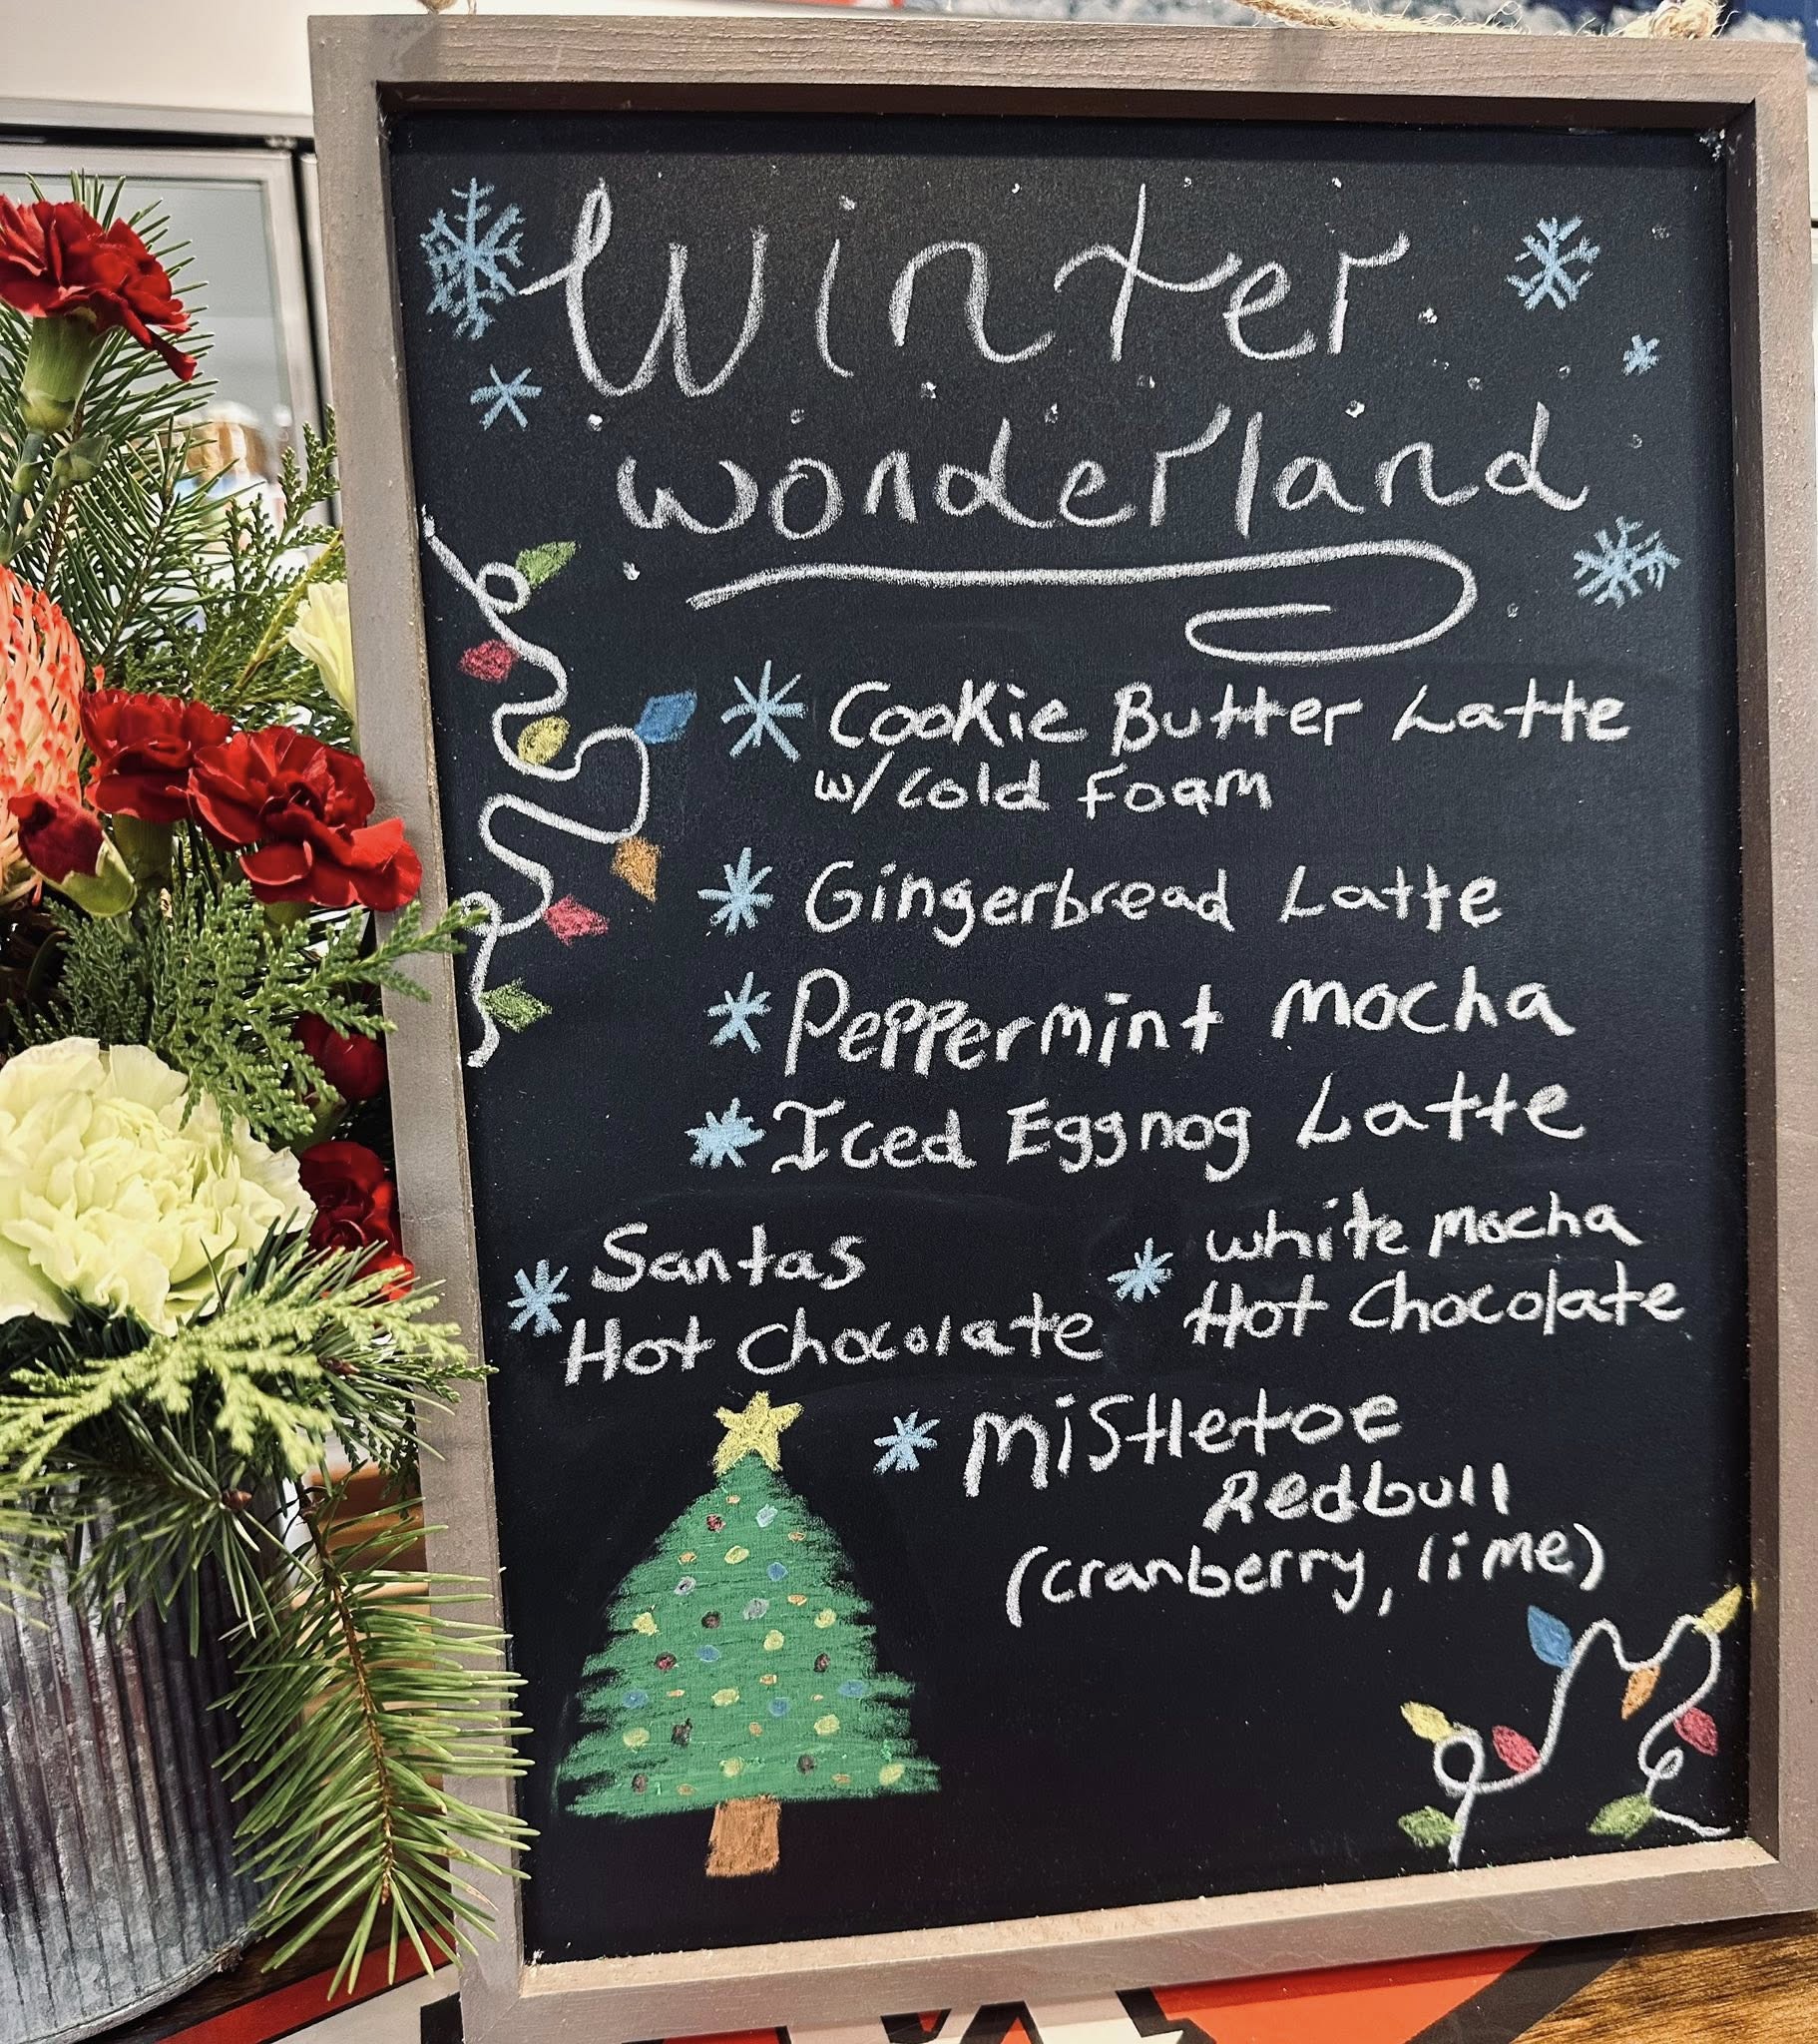 Winter
wonderland
Cookie Butter Latte
w/Cold Foam
Gingerbread Latte
Peppermint Mocha
Iced Eggnog Latte
Santas
Hot Chocolate
white mocha
Hot Chocolate
Mistletoe
Redbull
(cranberry, lime)